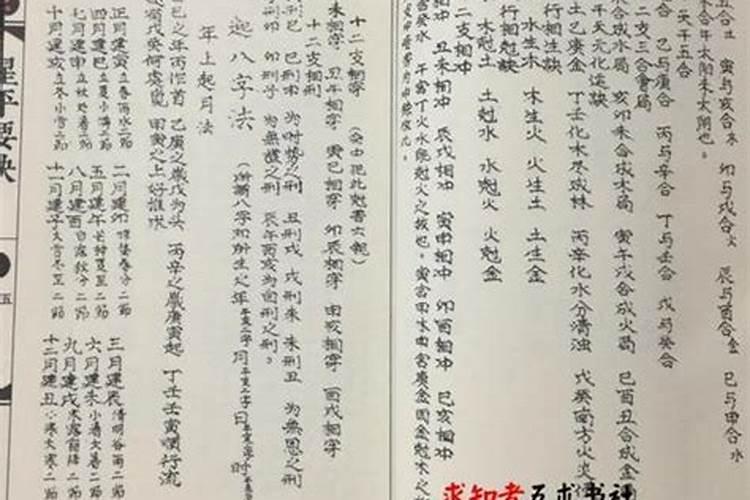 五合土 寅与亥合木 卯与戌合火 辰与酉合金 巳与申合水
未合午太阳未太阴也。
天干五合
合 乙与庚合 丙与辛合 丁与壬合 戊与癸合
二支三合會局
合成水局 亥卯未合成木局 寅午戌合成火局 巳酉丑合成金局
干天元化运訣
土乙庚金 丁壬化木尽成林 丙辛化水分清浊 戊癸南方火炎
行相生訣
水生木 木生火 火生土 土生金
行相尅訣
木尅土 土尅水 水尅火 火尅金
二支相冲
冲 丑未相冲 辰戌相冲 寅申相冲 卯酉相冲 巳亥相冲
癸水 午宫丁火水能尅火之故也。寅宫甲木申宫庚金因金尅木之
十二支相穿
未相穿 丑午相穿 寅巳相穿 卯辰相穿 申亥相穿 酉戌相穿
十二支相刑
刑巳 巳刑申 为时势之刑 丑刑戌 戌刑未 未刑丑 为無恩之刑
刑卯 卯刑子 为無禮之刑 辰午酉亥为自刑之刑。
起八字法
年上起月法
甲己之年丙作首 乙庚之歲戊为头 丙辛之歲庚寅起 丁壬壬寅顺行流
戊癸何處覓 甲寅之上好推求
正月建寅立春雨水二節 二月建卯惊蛰春分二節 三月建辰清明谷雨二節
四月建巳立夏小满二節 五月建午芒种夏至二節 六月建未小暑大暑二節
七月建申立秋处暑二節 八月建酉白露秋分二節 九月建戌寒露霜降二節
十月建亥立冬小雪二節 十一月建子大雪冬至二節 十二月建丑小寒大寒二節
星平要訣
五
求知者互求书社